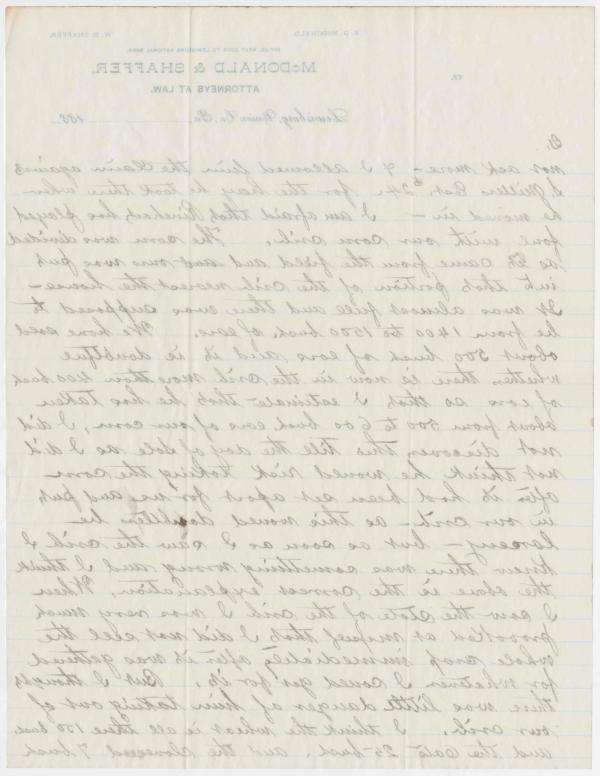 A. D. McDONALD. W. D. SHAFFER.
OFFICE, WEST DOOR TO LEWISBURG NATIONAL BANK.
McDONALD & SHAFFER,
ATTORNEYS AT LAW.
vs.
Lewisburg, Union Co. Pa. 188
not ask more - & I allowed him the claim against
Millers Est. $24. for the hay he took there when
he moved in - I am afraid that Rinehart has played
foul with our corn crib. The corn was divided
as it came from the field and ours was put
into that portion of the crib nearest the house -
It was almost full and there was supposed to
be from 1400 to 1500 bush. of ears. We have sold
about 500 bush of ears and it is doubtful
whether there is now in the crib more than 400 bush
of ears so that I estimate that he has taken
about from 500 to 600 bush ears of our corn, I did
not discover this till the day of sale as I did
not think he would risk taking the corn
after it had been set apart for me and put
in our crib - as this would doubtless be
larceny - but as soon as I saw the crib I
knew there was something wrong and I think
the above is the correct explanation. When
I saw the state of the crib I was very much
provoked at myself that I did not sell the
whole crop immediately after it was gathered
for whatever I could get for it. But I thought
there was little danger of him taking out of
our crib. I think the wheat is all there 150 bush.
and the oats 25 bush. and the cloverseed 7 bush